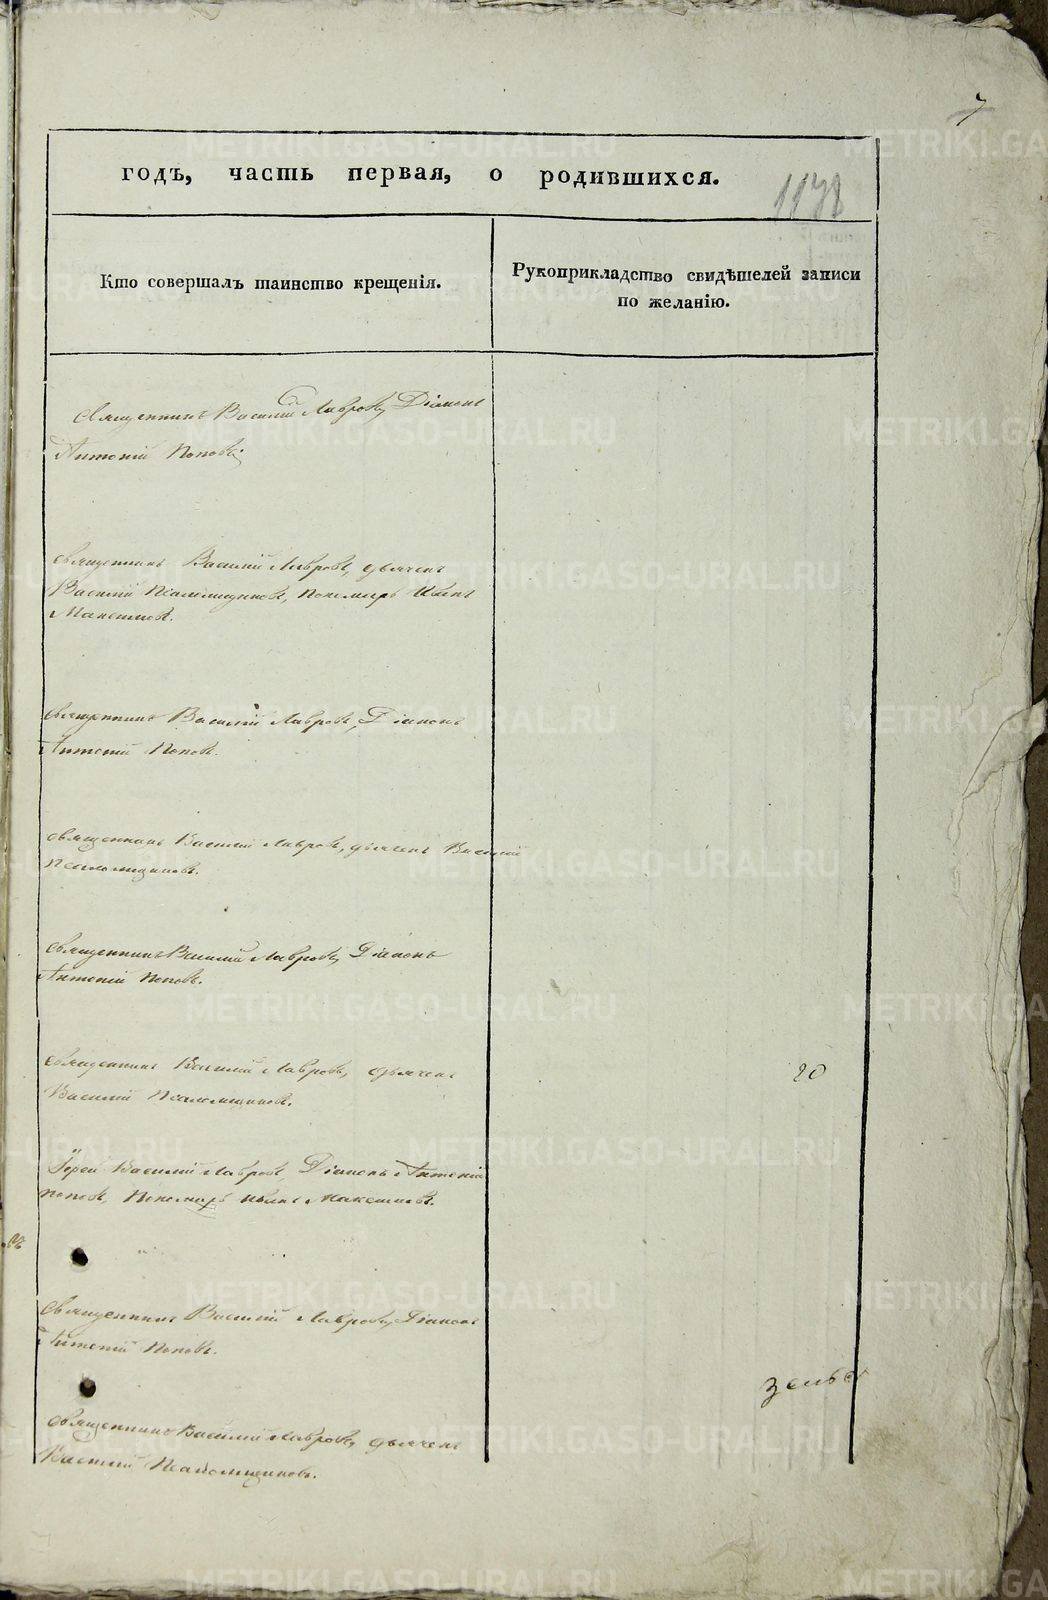 7
годъ, часть первая, о родившихся.
1138
Кто совершалъ таинство крещенія.
Рукоприкладство свидѣтелей записи
по желанію.
Священникъ Василій Лавровъ, Діаконъ
Антоній Поповъ.
Священникъ Василій Лавровъ, дьячекъ
Василій Псаломщиковъ, Пономарь Иванъ
Максимовъ.
Священникъ Василій Лавровъ, Діаконъ
Антоній Поповъ.
Священникъ Василій Лавровъ, дьячекъ Василій
Псаломщиковъ.
Священникъ Василій Лавровъ, Діаконъ
Антоній Поповъ.
Священникъ Василій Лавровъ, дьячекъ
Василій Псаломщиковъ.
20
Іерей Василій Лавровъ, Діаконъ Антоній
Поповъ, Пономарь Иванъ Максимовъ.
Священникъ Василій Лавровъ, Діаконъ
Антоній Поповъ.
Священникъ Василій Лавровъ, дьячекъ
Василій Псаломщиковъ.
METRIKI.GASO-URAL.RU